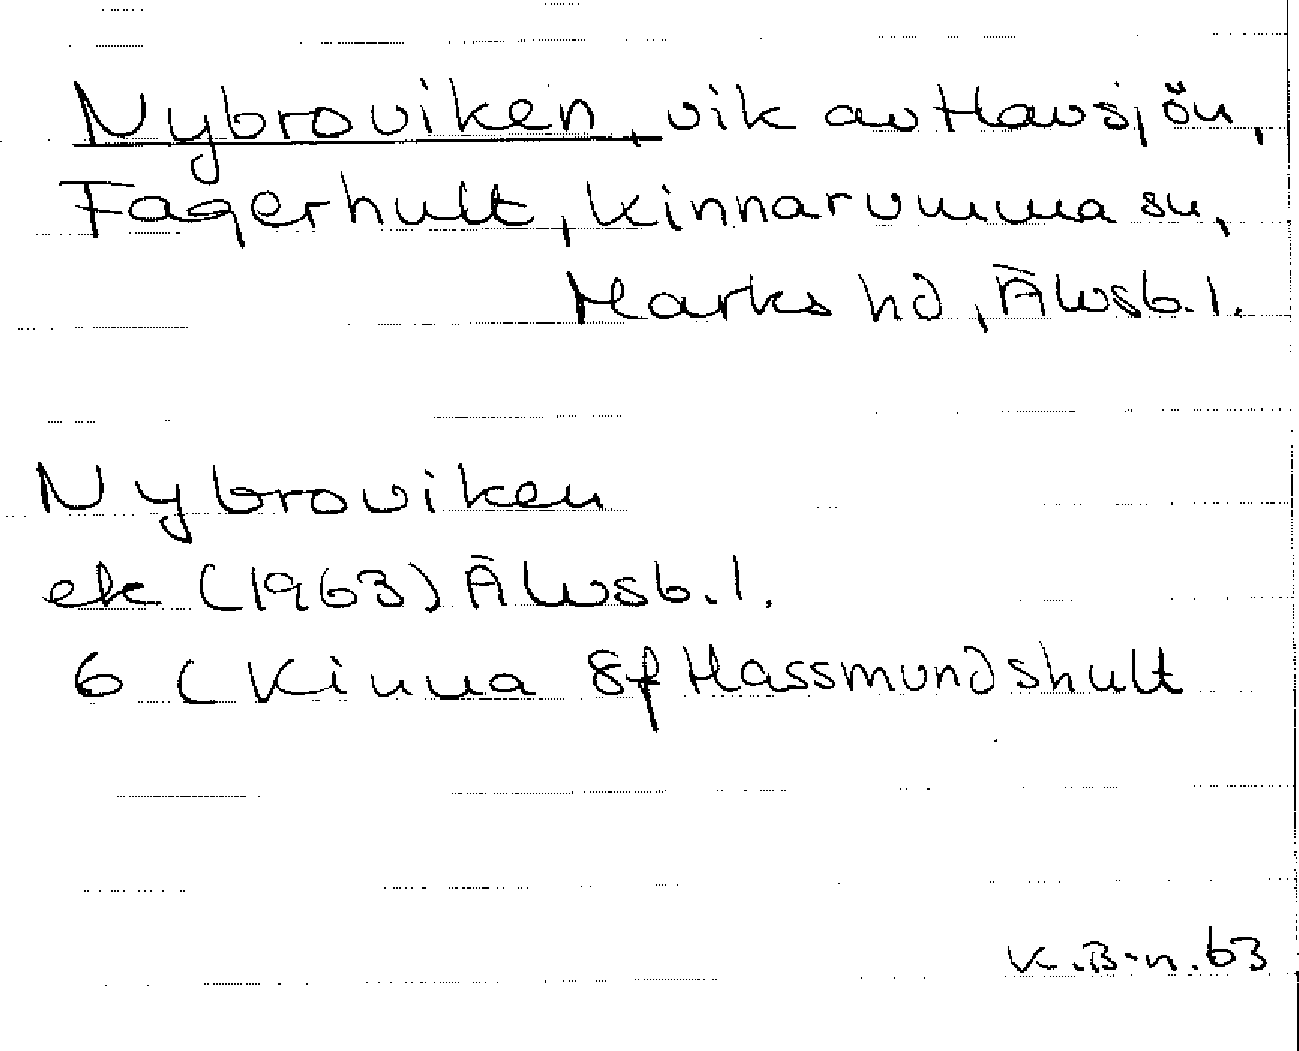 Nybroviken, vik av Havsjön,
Fagerhult, Kinnarumma sn,
Marks hd, Älvsb. l.
Nybroviken
ek (1963) Älvsb. l.
6 (Kinna 8f Hassmundshult
K.B-n. 63